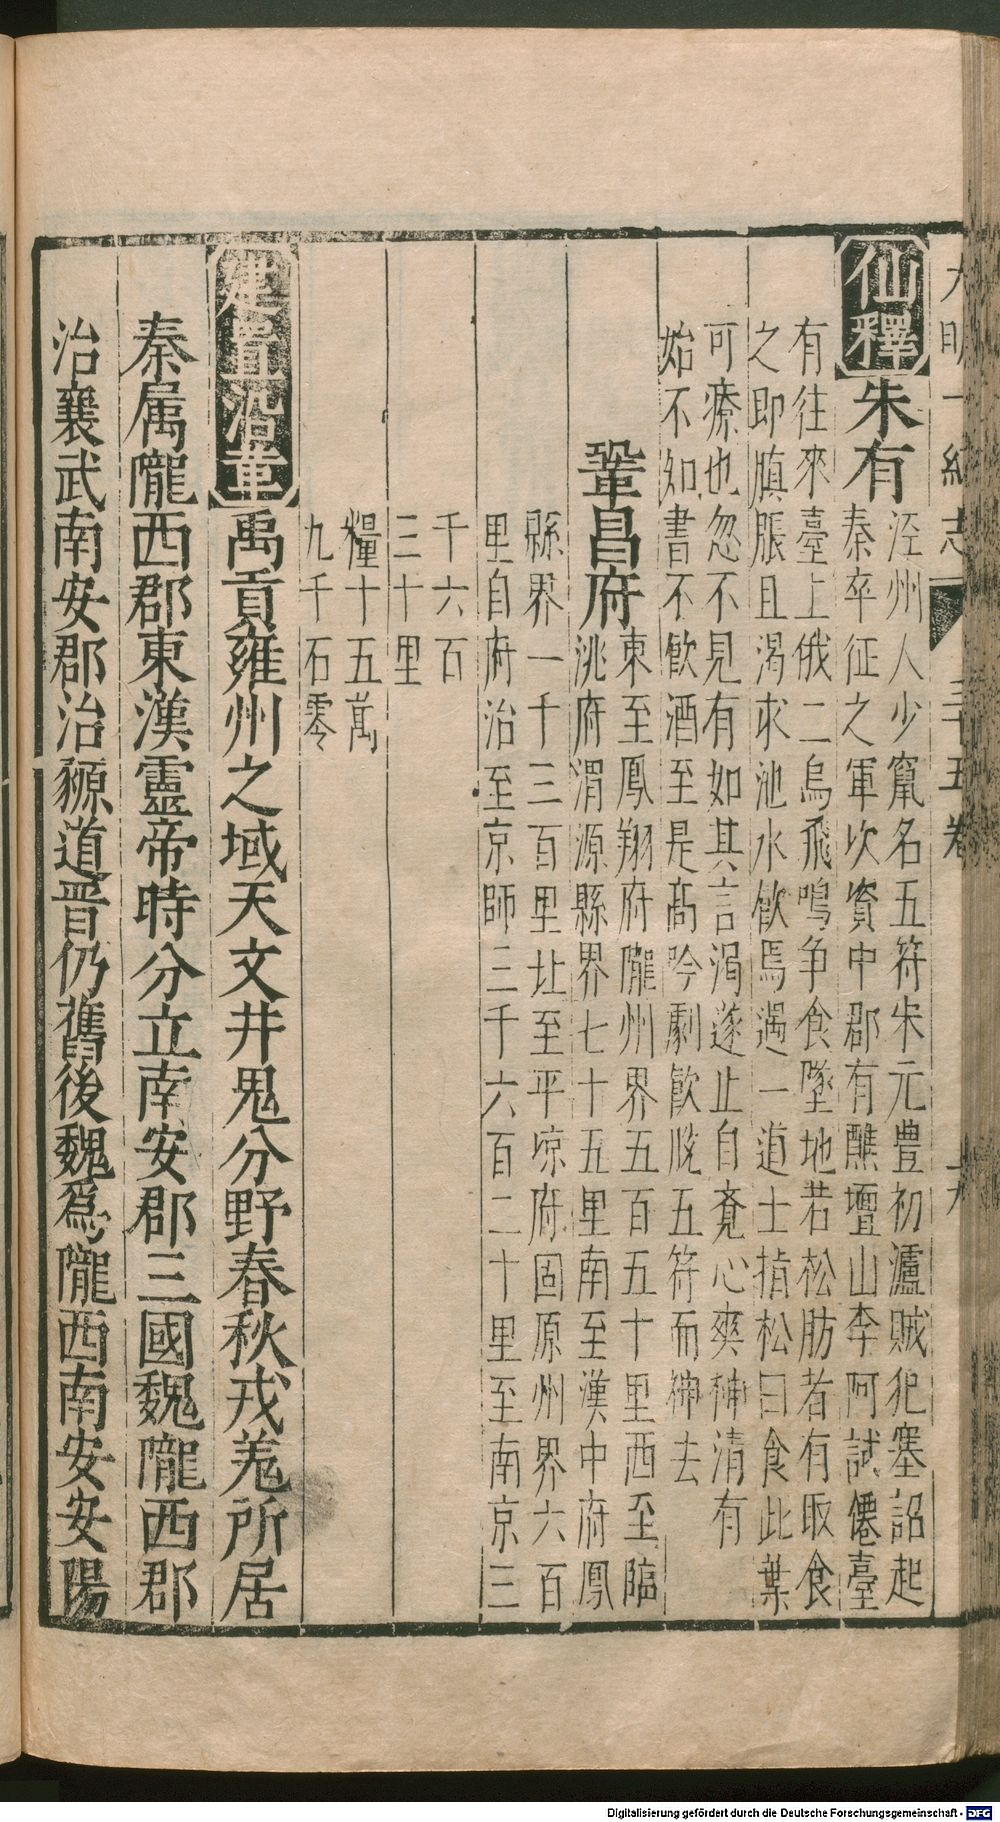 大明一統志 三十五卷 十九
仙釋 朱有
涇州人少竄名五符宋元豊初瀘賊犯塞詔起
秦卒征之軍次資中郡有醮壇山李阿試僊臺
有往來臺上俄二烏飛鳴争食墜地若松肪者有取食
之即䐜脹且渴求池水飲焉遇一道士指松曰食此葉
可療也忽不見有如其言渴遂止自覺心爽神清有
始不知書不飲酒至是髙吟劇飲脫五符而神去
鞏昌府
東至鳳翔府隴州界五百五十里西至臨
洮府渭源縣界七十五里南至漢中府鳳
縣界一千三百里北至平凉府固原州界六百
里自府治至京師三千六百二十里至南京三
千六百
三十里
糧十五萬
九千石零
建置沿革 禹貢雍州之域天文井鬼分野春秋戎羗所居
秦属隴西郡東漢靈帝時分立南安郡三國魏隴西郡
治襄武南安郡治豲道晋仍舊後魏爲隴西南安安陽
Digitalisierung gefördert durch die Deutsche Forschungsgemeinschaft - DFG